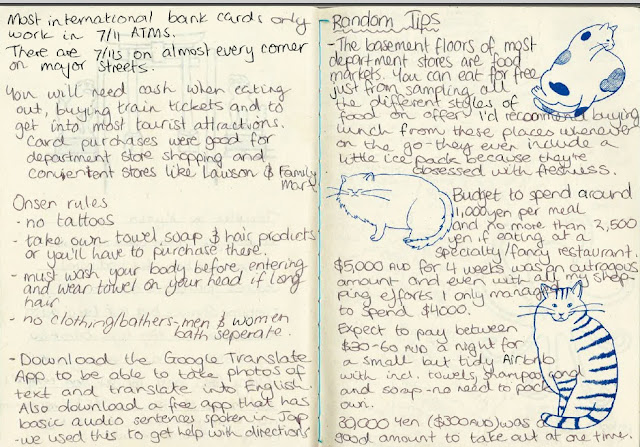 Most international bank cards only
work in 7/11 ATMS.
There are 7/11s on almost every corner
on major streets.
You will need cash when eating
out, buying train tickets and to
get into most tourist attractions.
Card purchases were good for
department store shopping and
convenient stores like Lawson & Family
Mart
Onsen rules
- no tattoos
- take own towel, soap & hair products
or you'll have to purchase there.
- must wash your body before entering
and wear towel on your head if long
hair
- no clothing/bathers - men & women
bath seperate.
- Download the Google Translate
App to be able to take photos of
text and translate into English.
Also download a free app that has
basic audio sentences spoken in Jap
- we used this to get help with directions
Random Tips
- The basement floors of most
department stores are food
markets. You can eat for free
just from sampling all
the different styles of
food on offer. I'd recommend buying
lunch from these places whenever
on the go - they even include a
little ice pack because they're
obsessed with freshness.
Budget to spend around
1,000yen per meal
and no more than 2,500
yen if eating at a
specialty/fancy restaurant.
$5,000 AUD for 4 weeks was an outragous
amount and even with all my shop-
ping efforts I only managed
to spend $4000.
Expect to pay between
$30-60 AUD a night for
a small but tidy Airbnb
with incl. towels, shampoo, cond
and soap - no need to pack
own.
30,000 yen ($300 AUD) was a
good amount to take out at one time.